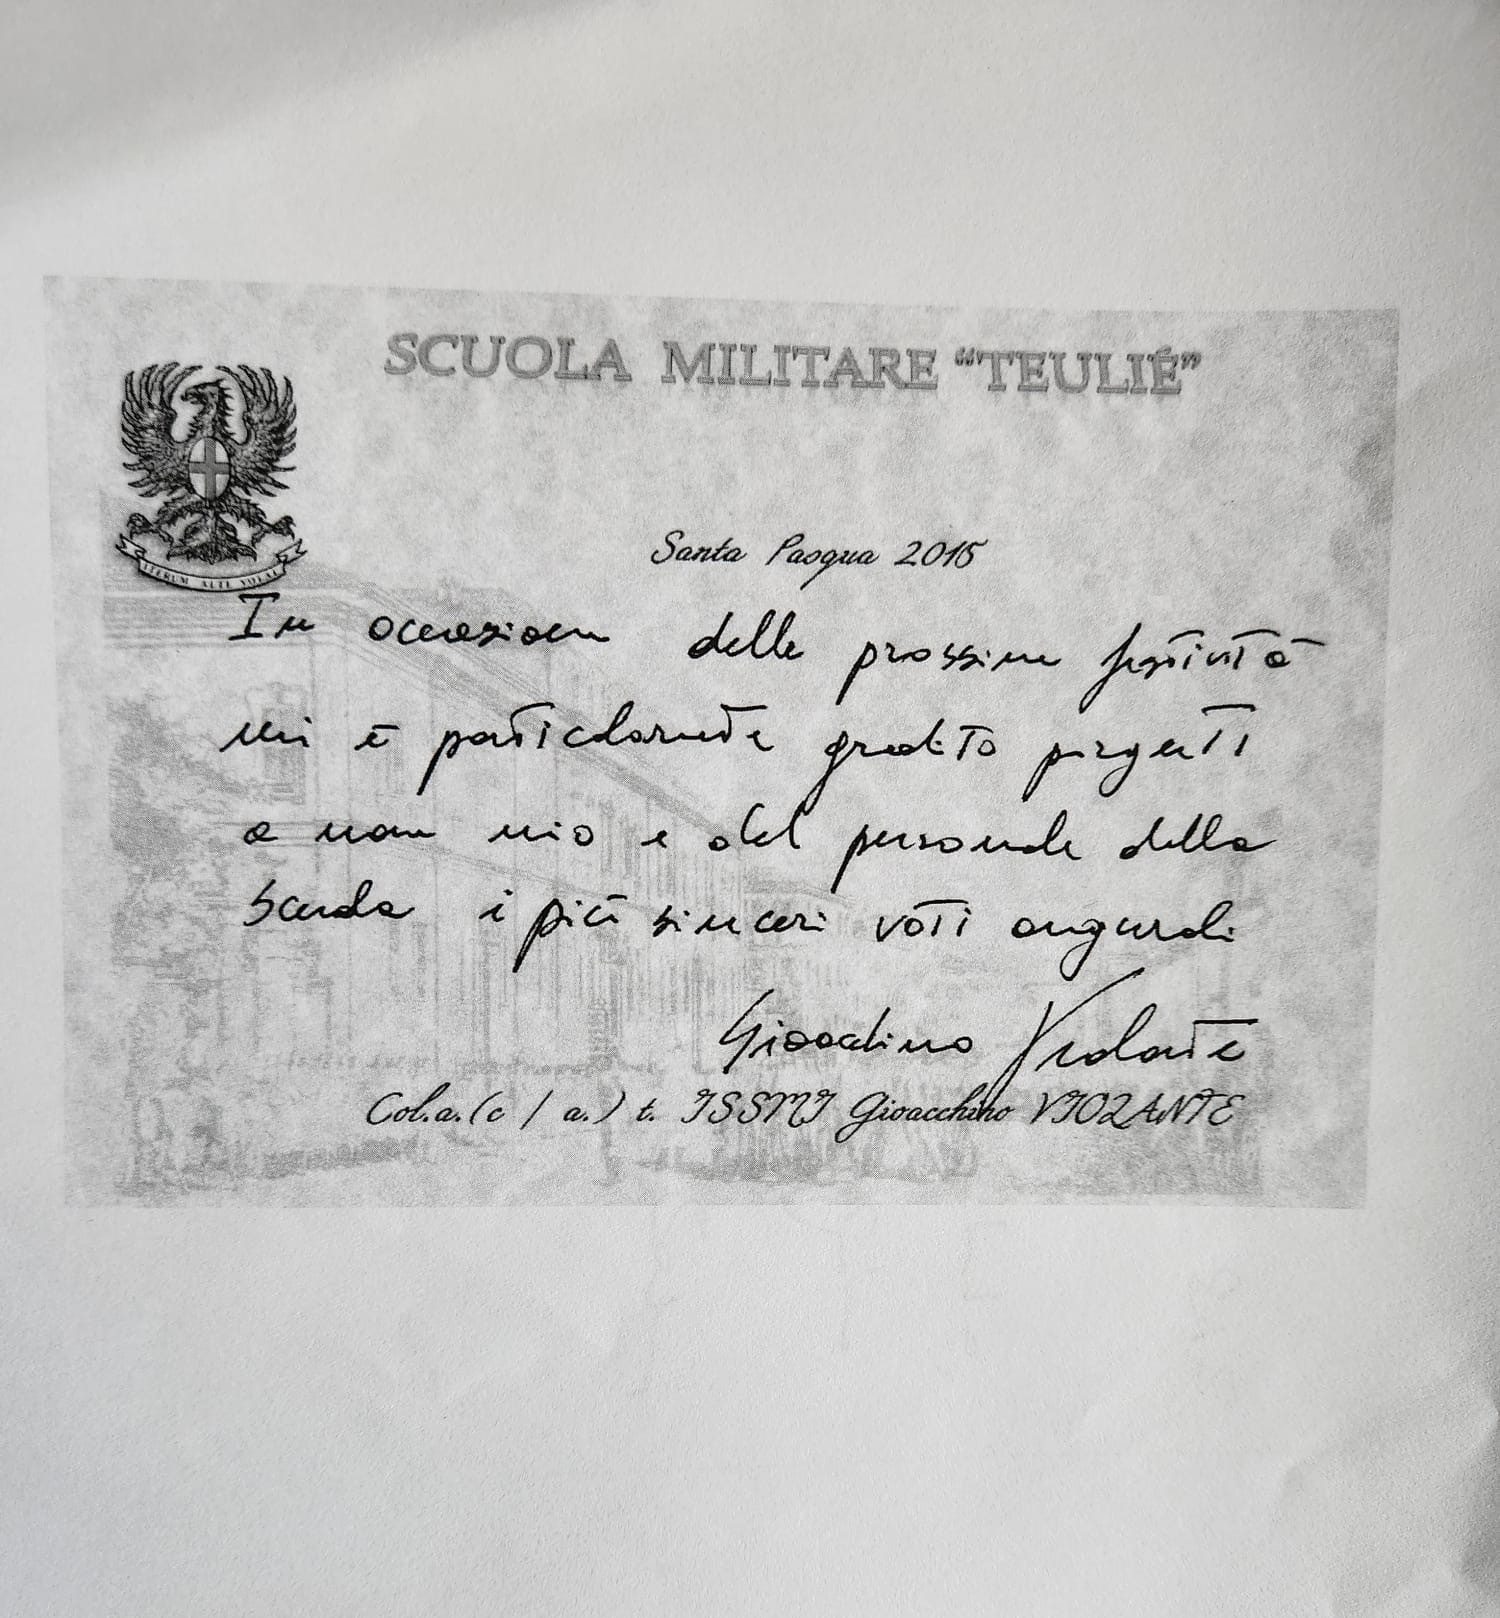 SCUOLA MILITARE "TEULIÉ"
ITERUM ALTE VOLAT
Santa Pasqua 2015
In occasione delle prossime festività
mi è particolarmente gradito porgerti
a nome mio e del personale della
Scuola i più sinceri voti augurali
Gioacchino Violante
Col.a.(c / a.) t. ISSMI Gioacchino VIOLANTE